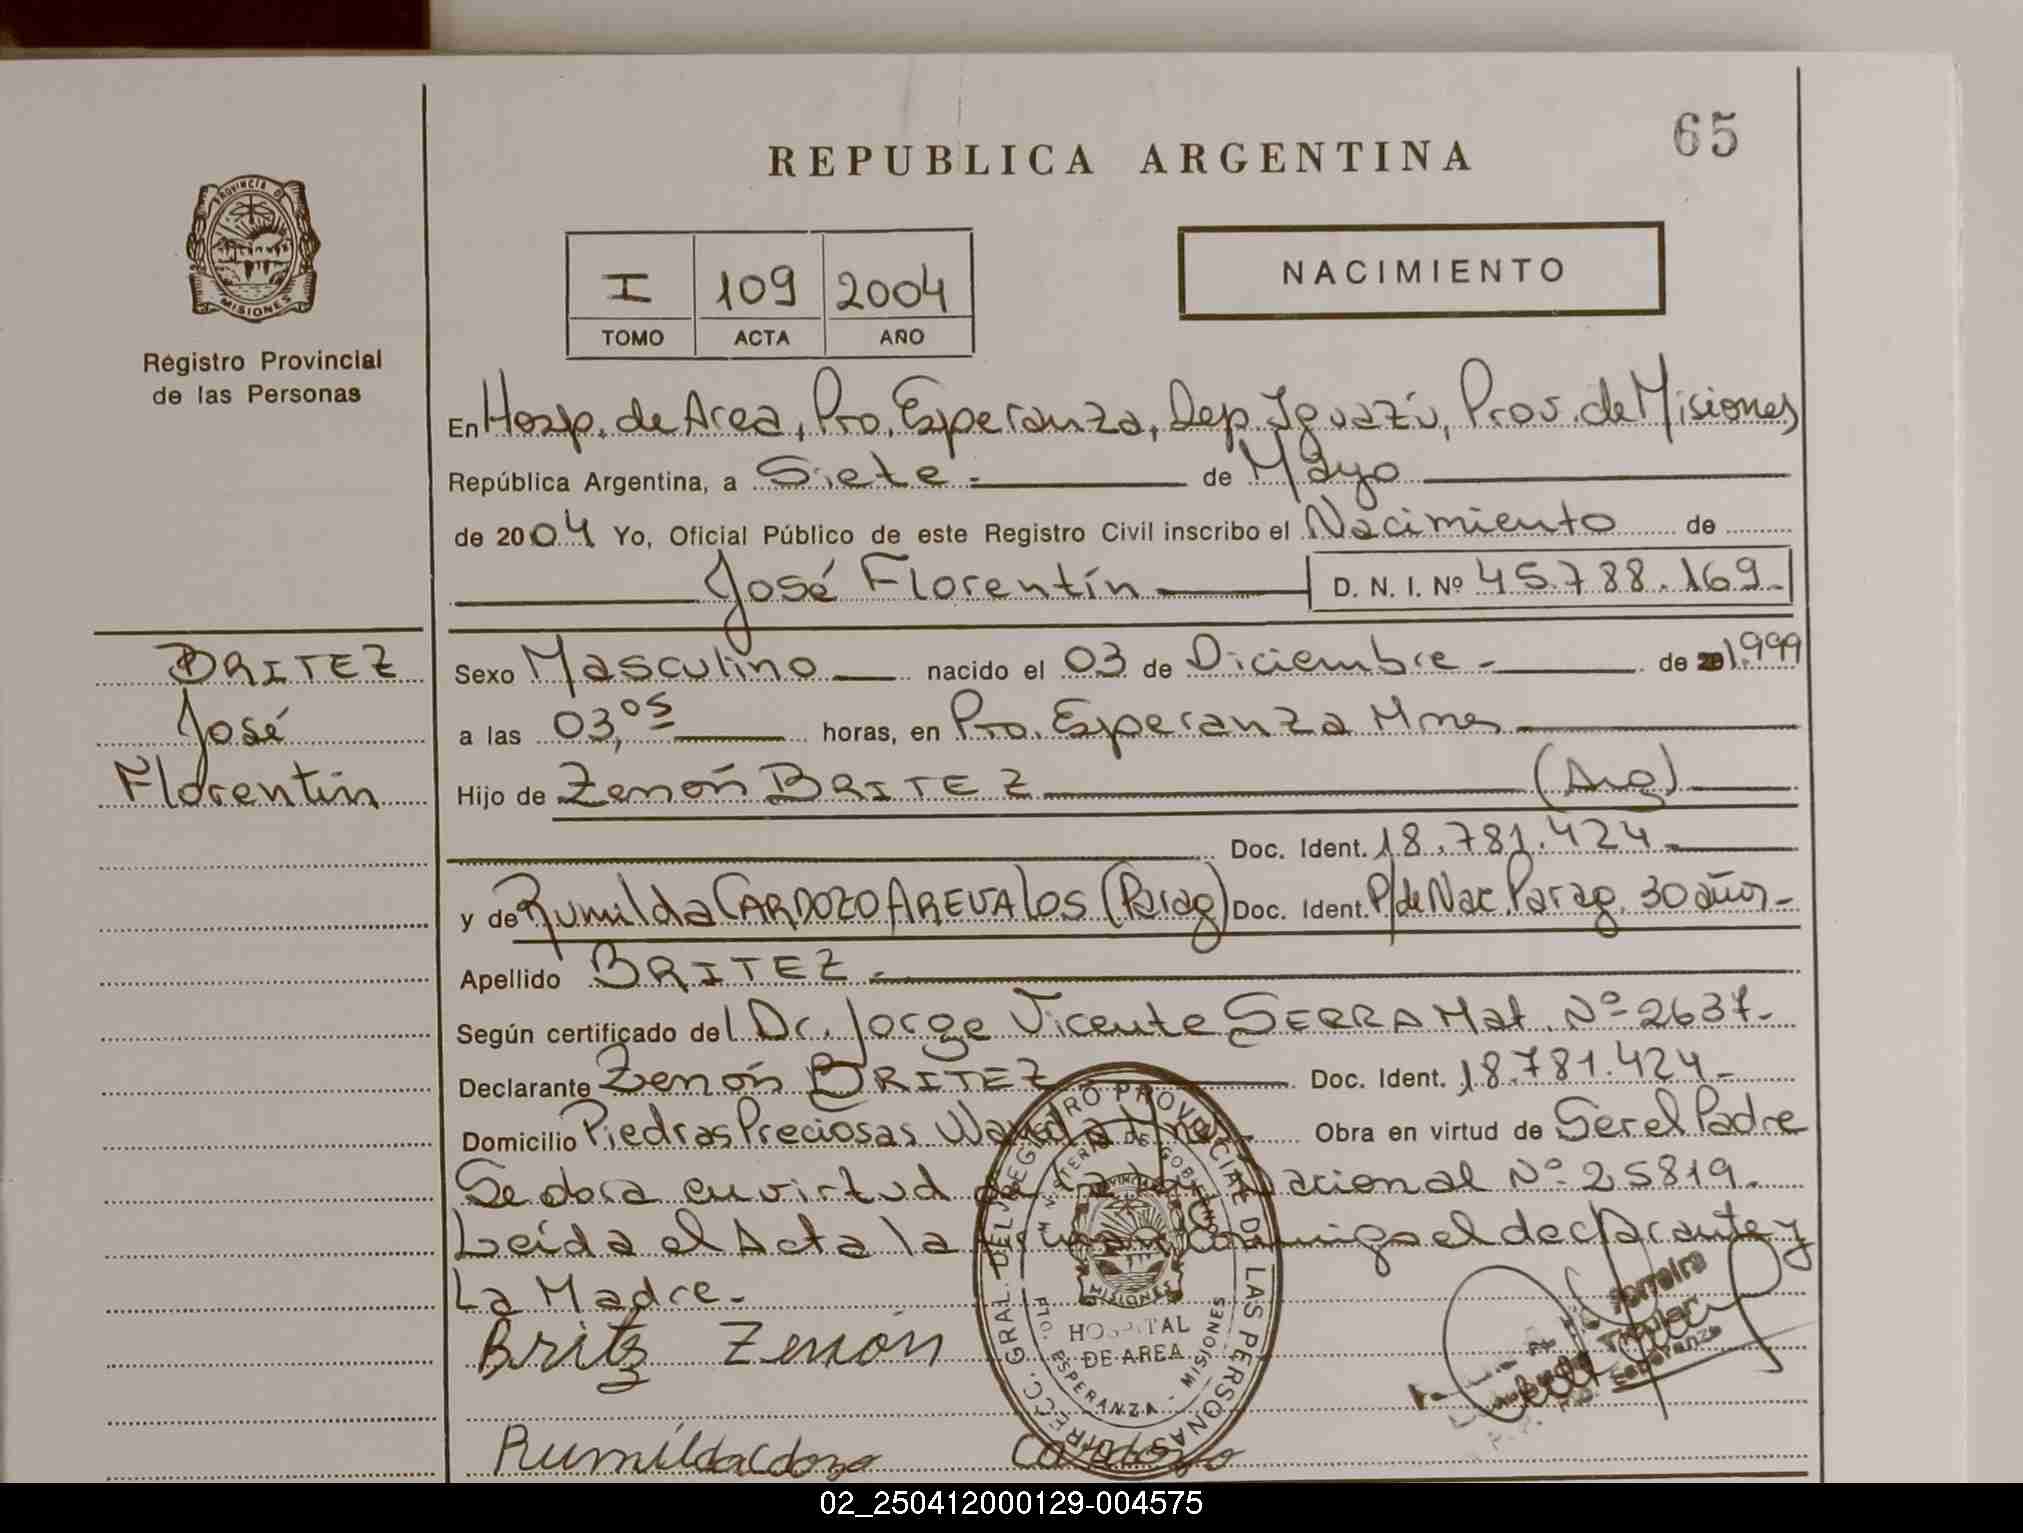 65
REPUBLICA ARGENTINA
PROVINCIA DE
MISIONES
Registro Provincial
de las Personas
I 109 2004
TOMO ACTA AÑO
NACIMIENTO
En Hosp. de Area, Pto. Esperanza, Dep. Iguazú, Prov. de Misiones
República Argentina, a Siete.- de Mayo
de 2004 Yo, Oficial Público de este Registro Civil inscribo el Nacimiento de
José Florentín D. N. I. Nº 45.788.169-
BRITEZ
José
Florentín
Sexo Masculino nacido el 03 de Diciembre- de 1.999
a las 03,05 horas, en Pto. Esperanza Mnes
Hijo de Zenón BRITEZ (Arg)
Doc. Ident. 18.781.424-
y de Rumilda CARDOZO AREVALOS (Parag) Doc. Ident. P/de Nac. Parag. 30 años-
Apellido BRITEZ-
Según certificado del Dr. Jorge Vicente SERRA Mat. Nº 2637-
Declarante Zenón BRITEZ Doc. Ident. 18.781.424-
Domicilio Piedras Preciosas, Wanda Mnes- Obra en virtud de Ser el Padre
Se obra en virtud de la Ley Nacional Nº 25819.
Leída el Acta la firman conmigo el declarante y
La Madre.-
Britz Zenón
Rumilda Cdozo Cardozo
DIRECC. GRAL. DEL REGISTRO PROVINCIAL DE LAS PERSONAS
MINISTERIO DE GOBIERNO
PROVINCIA
MISIONES
HOSPITAL
DE AREA
PTO. ESPERANZA - MISIONES
Ferreira
Titular
Esperanza
02_250412000129-004575